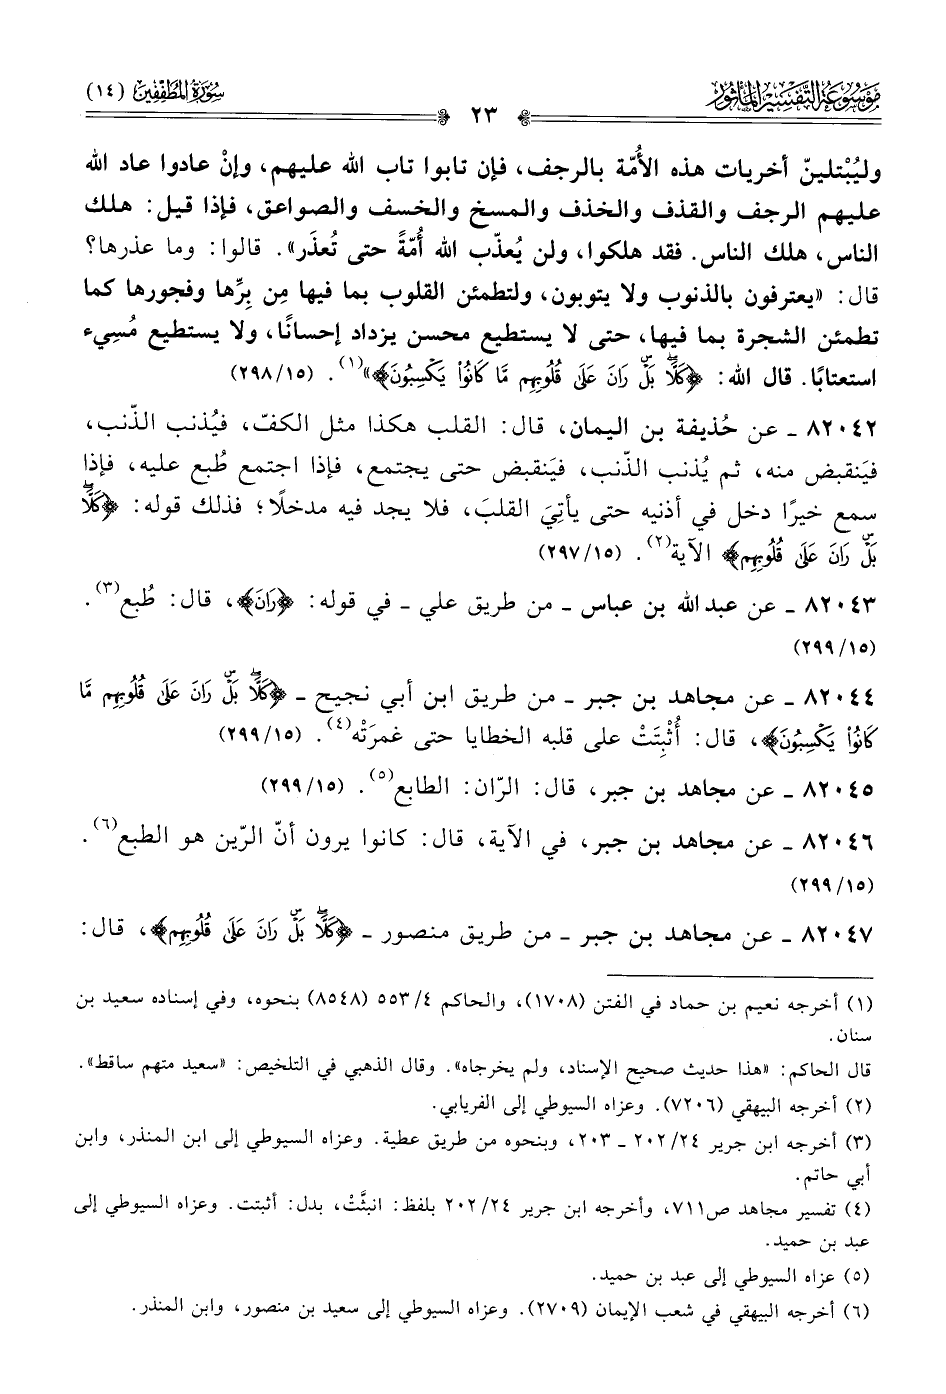 موسوعة التفسير المأثور
٢٣
سورة المطففين (١٤)
وليُبْتلينّ أخريات هذه الأُمّة بالرجف، فإن تابوا تاب الله عليهم، وإنْ عادوا عاد الله
عليهم الرجف والقذف والخذف والمسخ والخسف والصواعق، فإذا قيل: هلك
الناس، هلك الناس. فقد هلكوا، ولن يُعذّب الله أُمّةً حتى تُعذَر». قالوا: وما عذرها؟
قال: «يعترفون بالذنوب ولا يتوبون، ولتطمئن القلوب بما فيها مِن بِرِّها وفجورها كما
تطمئن الشجرة بما فيها، حتى لا يستطيع محسن يزداد إحسانًا، ولا يستطيع مُسِيء
استعتابًا. قال الله: ﴿كَلَّاۖ بَلْۜ رَانَ عَلَىٰ قُلُوبِهِم مَّا كَانُوا۟ يَكْسِبُونَ﴾»(١). (١٥/ ٢٩٨)
٨٢٠٤٢ ـ عن حُذيفة بن اليمان، قال: القلب هكذا مثل الكفّ، فيُذنب الذّنب،
فيَنقبض منه، ثم يُذنب الذّنب، فيَنقبض حتى يجتمع، فإذا اجتمع طُبع عليه، فإذا
سمع خيرًا دخل في أذنيه حتى يأتِيَ القلبَ، فلا يجد فيه مدخلًا؛ فذلك قوله: ﴿كَلَّاۖ
بَلْۜ رَانَ عَلَىٰ قُلُوبِهِم﴾ الآية(٢). (١٥/ ٢٩٧)
٨٢٠٤٣ ـ عن عبد الله بن عباس ـ من طريق علي ـ في قوله: ﴿رَانَ﴾، قال: طُبع(٣).
(١٥/ ٢٩٩)
٨٢٠٤٤ ـ عن مجاهد بن جبر ـ من طريق ابن أبي نجيح ـ ﴿كَلَّاۖ بَلْۜ رَانَ عَلَىٰ قُلُوبِهِم مَّا
كَانُوا۟ يَكْسِبُونَ﴾، قال: أُثْبِتَتْ على قلبه الخطايا حتى غمرَتْه(٤). (١٥/ ٢٩٩)
٨٢٠٤٥ ـ عن مجاهد بن جبر، قال: الرّان: الطابع(٥). (١٥/ ٢٩٩)
٨٢٠٤٦ ـ عن مجاهد بن جبر، في الآية، قال: كانوا يرون أنّ الرّين هو الطبع(٦).
(١٥/ ٢٩٩)
٨٢٠٤٧ ـ عن مجاهد بن جبر ـ من طريق منصور ـ ﴿كَلَّاۖ بَلْۜ رَانَ عَلَىٰ قُلُوبِهِم﴾، قال:
(١) أخرجه نعيم بن حماد في الفتن (١٧٠٨)، والحاكم ٤/ ٥٥٣ (٨٥٤٨) بنحوه، وفي إسناده سعيد بن
سنان.
قال الحاكم: «هذا حديث صحيح الإسناد، ولم يخرجاه». وقال الذهبي في التلخيص: «سعيد متهم ساقط».
(٢) أخرجه البيهقي (٧٢٠٦). وعزاه السيوطي إلى الفريابي.
(٣) أخرجه ابن جرير ٢٤/ ٢٠٢ ـ ٢٠٣، وبنحوه من طريق عطية. وعزاه السيوطي إلى ابن المنذر، وابن
أبي حاتم.
(٤) تفسير مجاهد ص٧١١، وأخرجه ابن جرير ٢٤/ ٢٠٢ بلفظ: انبثَّتْ، بدل: أثبتت. وعزاه السيوطي إلى
عبد بن حميد.
(٥) عزاه السيوطي إلى عبد بن حميد.
(٦) أخرجه البيهقي في شعب الإيمان (٢٧٠٩). وعزاه السيوطي إلى سعيد بن منصور، وابن المنذر.